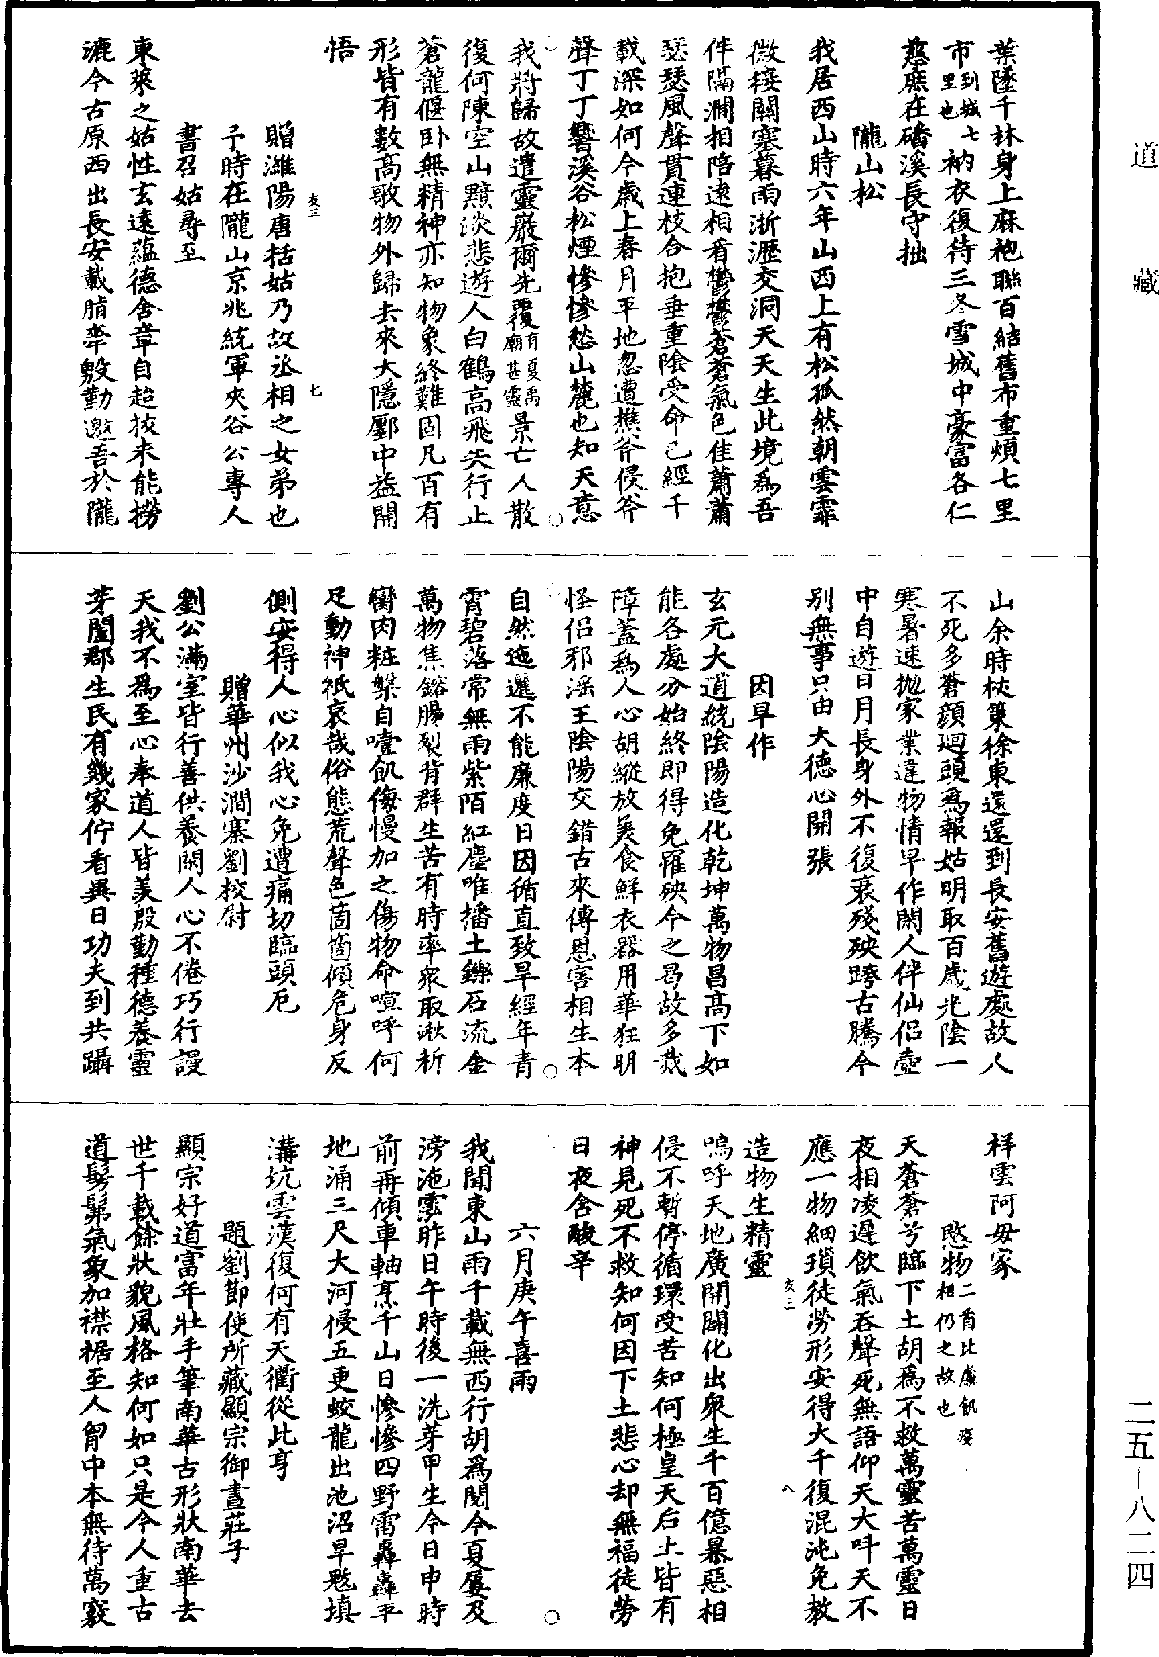 道藏
二五—八二四
葉墜千林身上麻袍聯百結舊布重煩七里
市到城七里也衲衣復待三冬雪城中豪富各仁
慈應在磻溪長守拙
隴山松
我居西山時六年山西上有松孤然朝雲霏
微接關塞暮雨浙瀝交洞天天生此境為吾
伴隔澗相陪遠相看鬱鬱蒼蒼氣色佳蕭蕭
瑟瑟風聲貫連枝合抱垂重陰受命已經千
載深如何今歲上春月平地忽遭樵斧侵斧
聲丁丁響溪谷松煙慘慘愁山麓也知天意
我將歸故遣靈巖爾先覆有夏禹廟甚靈景亡人散
復何陳空山黯淡悲遊人白鶴高飛失行止
蒼龍偃卧無精神亦知物象終難固凡百有
形皆有數高歌物外歸去來大隱鄽中益開
悟
亥三
七
贈濰陽唐括姑乃故丞相之女弟也
予時在隴山京兆統軍夾谷公專人
書召姑尋至
東萊之姑性玄遠蘊德含章自超拔未能撈
漉今古原西出長安載脂牽慇懃邀吾於隴
山余時杖策徐東還還到長安舊遊處故人
不死多蒼顏迴頭為報姑明取百歲光陰一
寒暑速拋家業違物情早作閑人伴仙侣壺
中自遊日月長身外不復衰殘殃跨古騰今
別無事只由大德心開張
因旱作
玄元大道統陰陽造化乾坤萬物昌高下如
能各處分始終即得免罹殃今之曷故多烖
障蓋為人心胡縱放美食鮮衣器用華狂朋
怪侣邪滛王陰陽交錯古來傳恩害相生本
自然迤邐不能廉度日因循直致旱經年青
霄碧落常無雨紫陌紅塵唯播土鑠石流金
萬物焦鎔腸裂背群生苦有時率衆取湫祈
臠肉粧槃自噎飢傲慢加之傷物命喧呼何
足動神祇哀哉俗態荒聲色箇箇傾危身反
側安得人心似我心免遭痛切臨頭厄
贈華州沙澗寨劉校尉
劉公滿室皆行善供養閑人心不倦巧行謾
天我不為至心奉道人皆羡殷勤種德養靈
芽闔郡生民有幾家佇看異日功夫到共躡
祥雲阿母家
愍物二首比歲飢殍相仍之故也
天蒼蒼兮臨下土胡為不救萬靈苦萬靈日
夜相凌遲飲氣吞聲死無語仰天大呌天不
應一物細瑣徒勞形安得大千復混沌免教
造物生精靈
亥三
八
嗚呼天地廣開闢化出衆生千百億暴惡相
侵不暫停循環受苦知何極皇天后土皆有
神見死不救知何因下土悲心却無福徒勞
日夜含酸辛
六月庚午喜雨
我聞東山雨千載無西行胡為閱今夏屢及
滂沲霶昨日午時後一洗芽甲生今日申時
前再傾車軸烹千山日慘慘四野雷轟轟平
地涌三尺大河侵五更蛟龍出池沼旱魃填
溝坑雲漢復何有天衢從此亨
題劉節使所藏顯宗御畫莊子
顯宗好道富年壯手筆南華古形狀南華去
世千載餘狀貌風格知何如只是今人重古
道髣髴氣象加襟裾至人胷中本無待萬竅